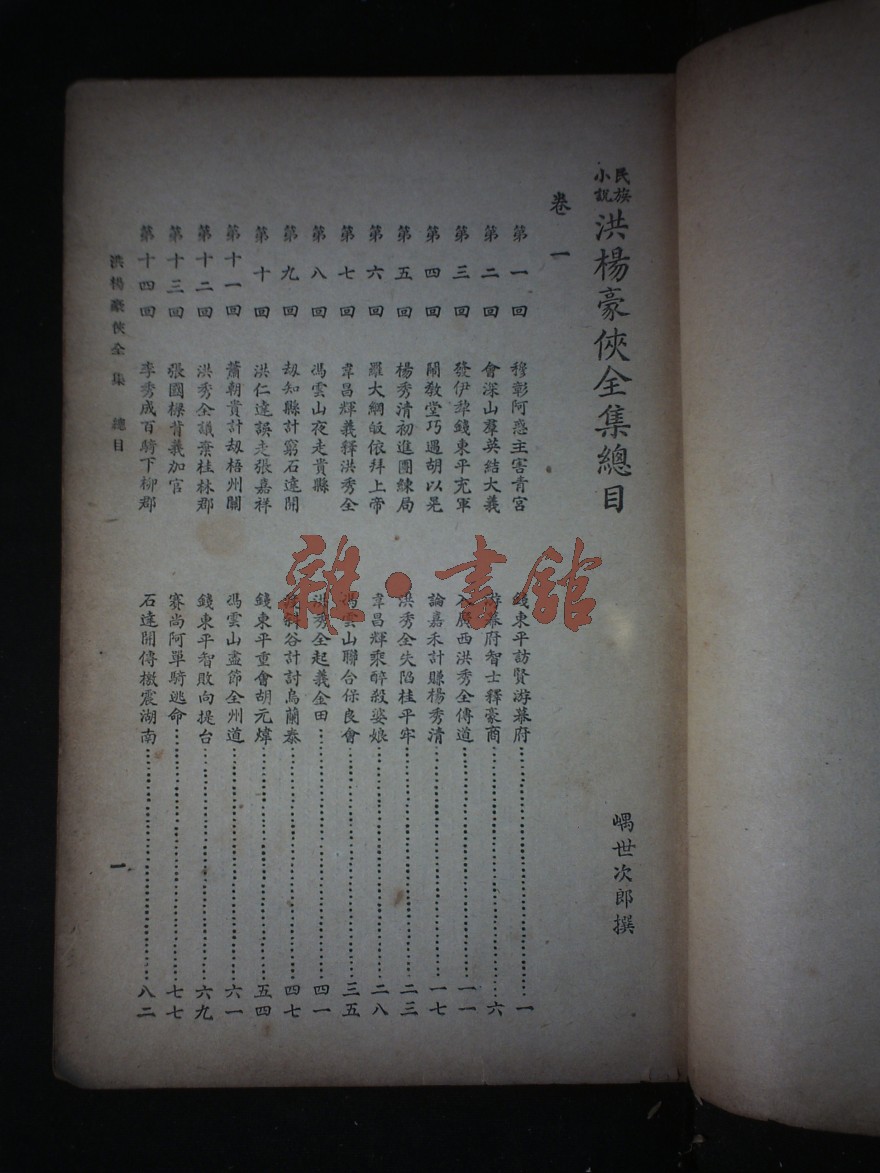 民族小說 洪楊豪俠全集總目 嵎世次郎撰
卷一
第一回 穆彰阿惑主害青宮 錢東平訪賢游幕府 一
第二回 會深山羣英結大義 游幕府智士釋豪商 六
第三回 發伊犂錢東平充軍 谷廣西洪秀全傳道 一一
第四回 鬧敎堂巧遇胡以晃 論嘉禾計賺楊秀清 一七
第五回 楊秀清初進團練局 洪秀全失陷桂平牢 二三
第六回 羅大綱皈依拜上帝 韋昌輝乘醉殺婆娘 二八
第七回 韋昌輝義釋洪秀全 馮雲山聯合保良會 三五
第八回 馮雲山夜走貴縣 洪秀全起義金田 四一
第九回 刼知縣計窮石達開 斜谷計討烏蘭泰 四七
第十回 洪仁達誤走張嘉祥 錢東平重會胡元煒 五四
第十一回 蕭朝貴計刼梧州關 馮雲山盡節全州道 六一
第十二回 洪秀全議棄桂林郡 錢東平智敗向提台 六九
第十三回 張國樑背義加官 賽尚阿單騎逃命 七七
第十四回 李秀成百騎下柳郡 石達開傳檄震湖南 八二
洪楊豪俠全集 總目 一
雜·書館